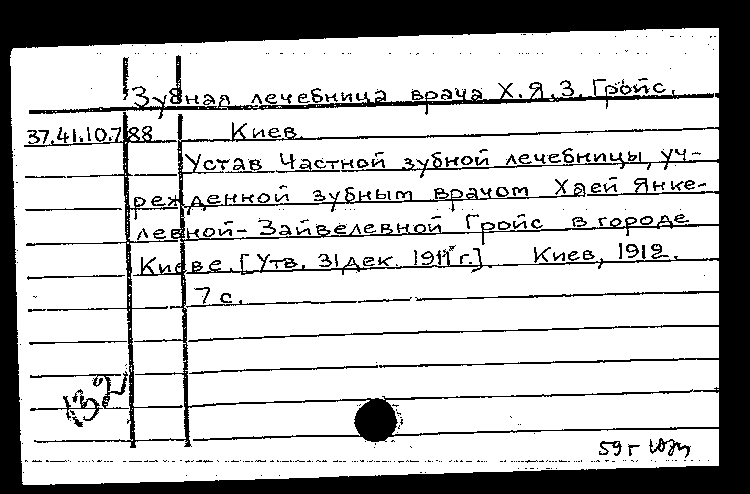 Зубная лечебница врача Х.Я.З. Гройс.
37.41.10.788 Киев.
Устав Частной зубной лечебницы, уч-
режденной зубным врачом Хаей Янке-
левной-Зайвелевной Гройс в городе
Киеве. [Утв. 31 дек. 1911 г.] Киев, 1912.
7 с.
132
59 г